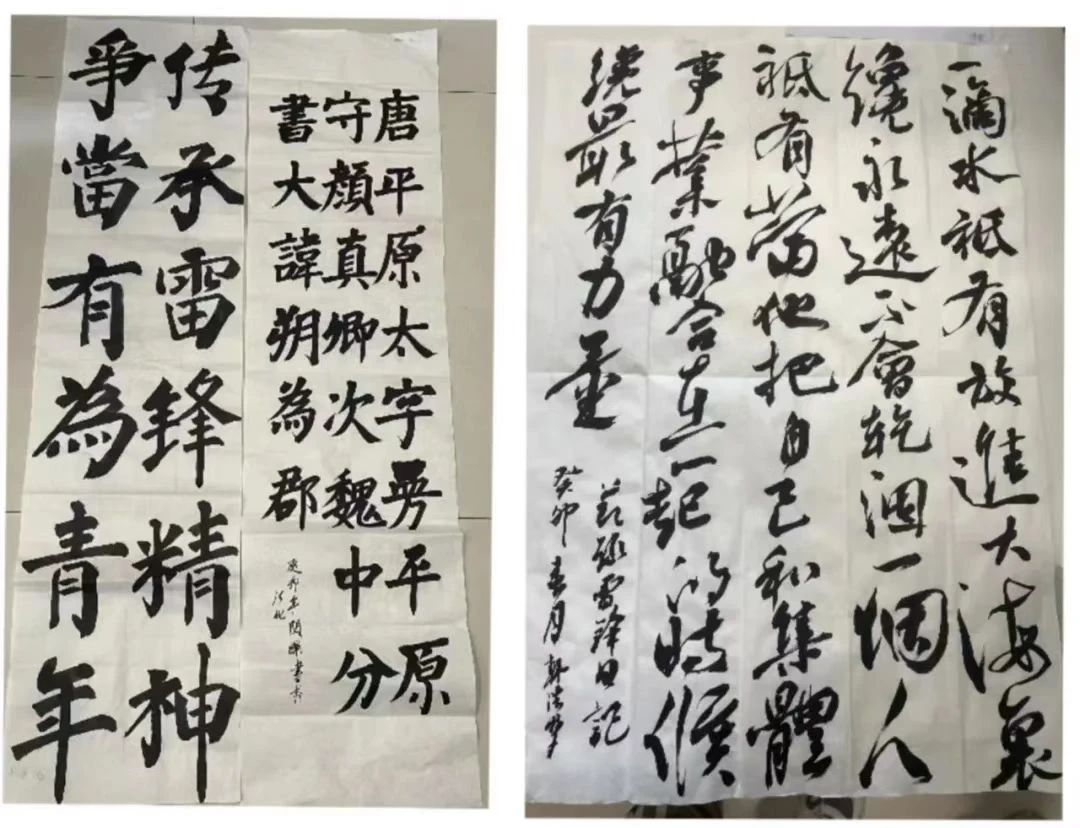 传承雷锋精神
爭當有為青年
唐平原太字曼平原
守顏真卿次魏中分
書大諱朔為郡
癸卯年
一滴水祗有放進大海裏
纔永遠不會乾涸一個人
祗有當他把自己和集體
事業融合在一起的時候
纔最有力量
節錄雷鋒日記
癸卯春月